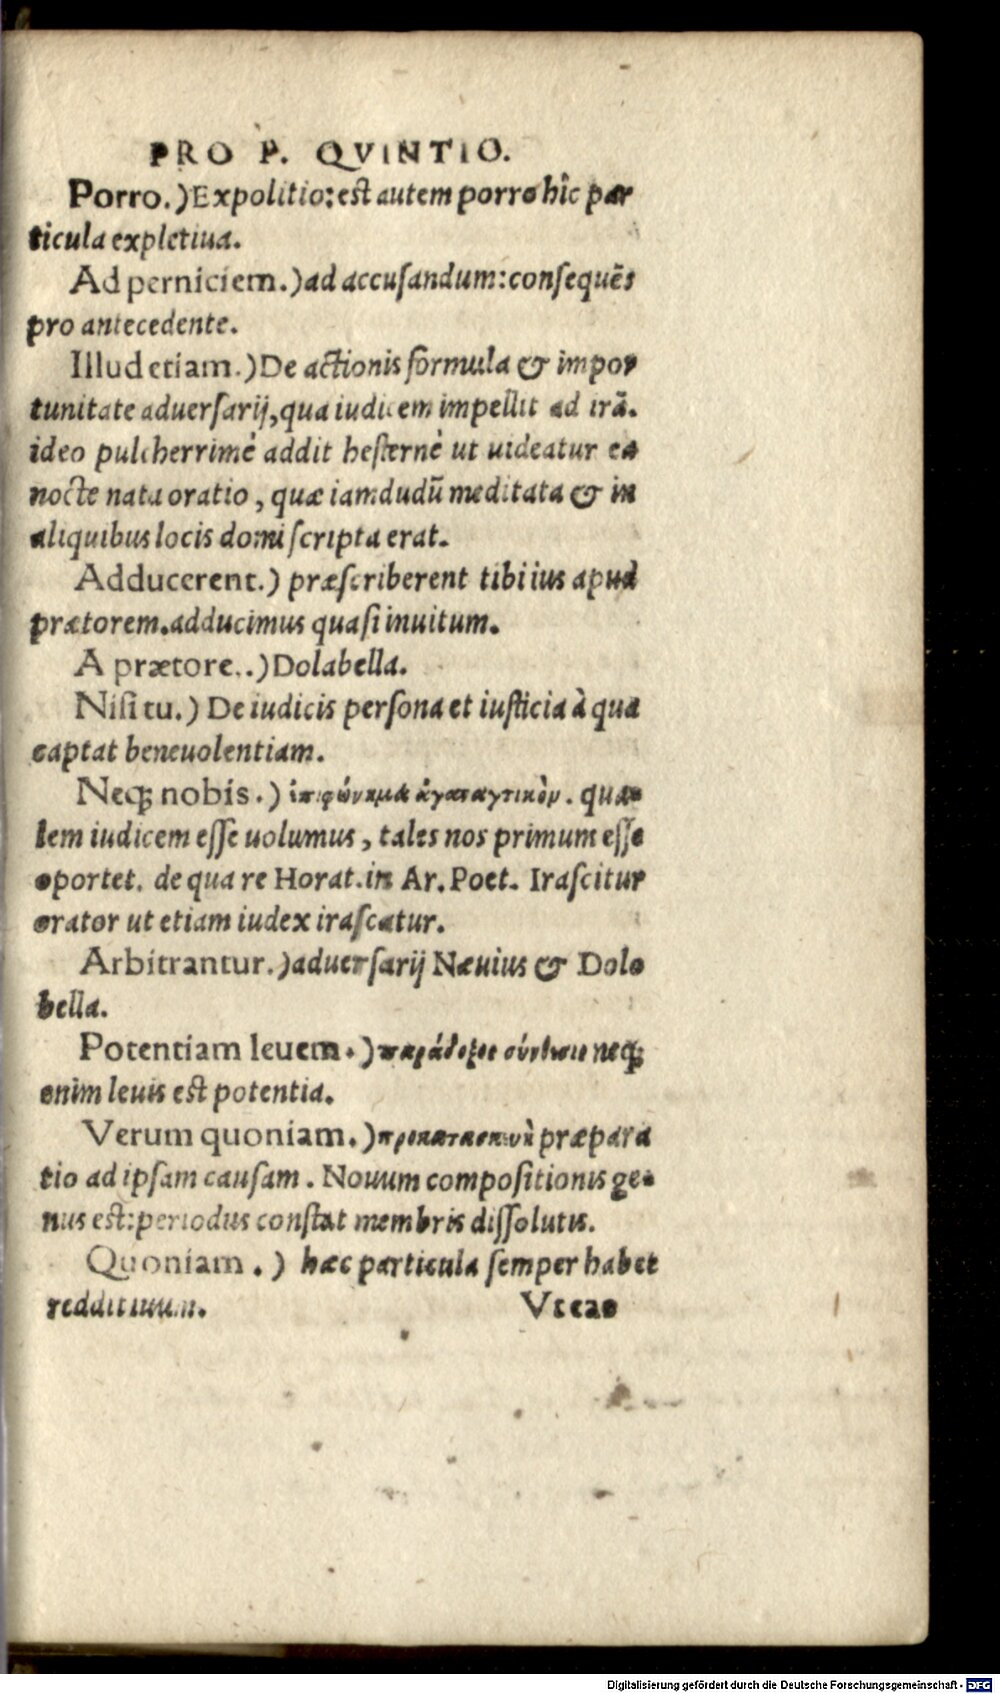 PRO P. QVINTIO.
Porro.) Expolitio: est autem porro hîc par
ticula expletiua.
Ad perniciem.) ad accusandum: consequẽs
pro antecedente.
Illud etiam.) De actionis formula & impor
tunitate aduersarij, qua iudicem impellit ad irã.
ideo pulcherrimè addit hesternè ut uideatur ea
nocte nata oratio, quæ iamdudũ meditata & in
aliquibus locis domi scripta erat.
Adducerent.) præscriberent tibi ius apud
prætorem. adducimus quasi inuitum.
A prætore..) Dolabella.
Nisi tu.) De iudicis persona et iusticia à qua
captat beneuolentiam.
Neq; nobis.) ἐπιφώνημα qua-
lem iudicem esse uolumus, tales nos primum esse
oportet. de qua re Horat. in Ar. Poet. Irascitur
orator ut etiam iudex irascatur.
Arbitrantur.) aduersarij Næuius & Dolo
bella.
Potentiam leuem.) neq;
enim leuis est potentia.
Verum quoniam.) προκατασκευὴ præpara
tio ad ipsam causam. Nouum compositionis ge-
nus est: periodus constat membris dissolutis.
Quoniam.) hæc particula semper habet
reddituum. Vt eas
Digitalisierung gefördert durch die Deutsche Forschungsgemeinschaft - DFG